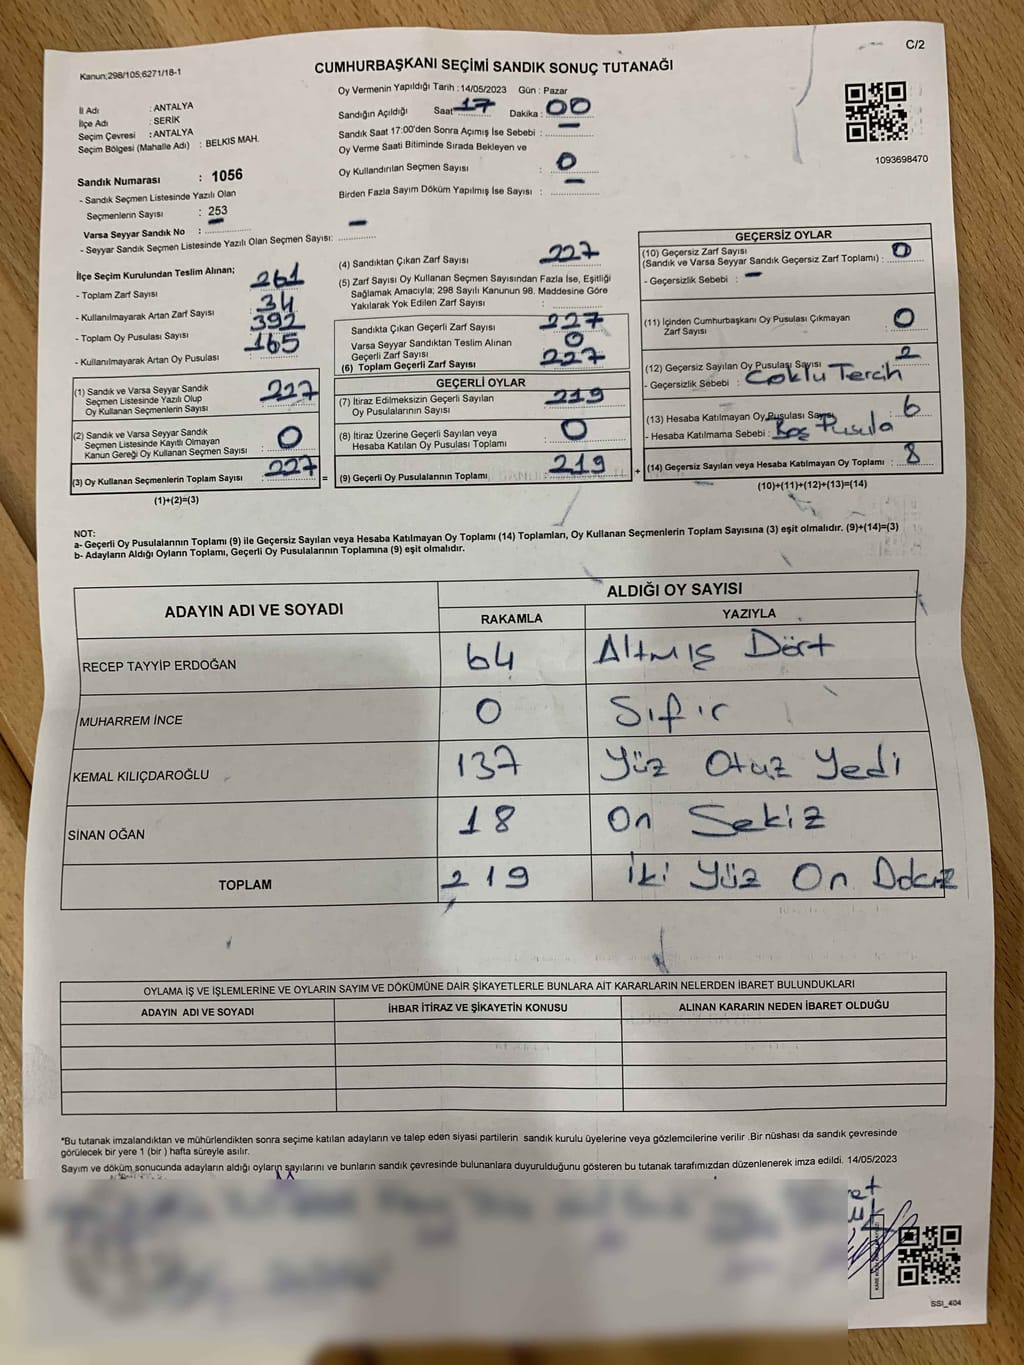 C/2
Kanun;298/105;6271/18-1
CUMHURBAŞKANI SEÇİMİ SANDIK SONUÇ TUTANAĞI
İl Adı : ANTALYA
İlçe Adı : SERİK
Seçim Çevresi : ANTALYA
Seçim Bölgesi (Mahalle Adı) : BELKIS MAH.
Sandık Numarası : 1056
- Sandık Seçmen Listesinde Yazılı Olan
Seçmenlerin Sayısı : 253
Varsa Seyyar Sandık No :
- Seyyar Sandık Seçmen Listesinde Yazılı Olan Seçmen Sayısı: —
Oy Vermenin Yapıldığı Tarih :14/05/2023 Gün : Pazar
Sandığın Açıldığı Saat 17 Dakika : 00
Sandık Saat 17:00'den Sonra Açımış İse Sebebi : —
Oy Verme Saati Bitiminde Sırada Bekleyen ve
Oy Kullandırılan Seçmen Sayısı : 0
Birden Fazla Sayım Döküm Yapılmış İse Sayısı : —
1093698470
İlçe Seçim Kurulundan Teslim Alınan;
- Toplam Zarf Sayısı 261
- Kullanılmayarak Artan Zarf Sayısı 34
- Toplam Oy Pusulası Sayısı 392
- Kullanılmayarak Artan Oy Pusulası 165
(1) Sandık ve Varsa Seyyar Sandık
Seçmen Listesinde Yazılı Olup
Oy Kullanan Seçmenlerin Sayısı : 227
(2) Sandık ve Varsa Seyyar Sandık
Seçmen Listesinde Kayıtlı Olmayan
Kanun Gereği Oy Kullanan Seçmen Sayısı : 0
(3) Oy Kullanan Seçmenlerin Toplam Sayısı : 227
(1)+(2)=(3)
(4) Sandıktan Çıkan Zarf Sayısı : 227
(5) Zarf Sayısı Oy Kullanan Seçmen Sayısından Fazla İse, Eşitliği
Sağlamak Amacıyla; 298 Sayılı Kanunun 98. Maddesine Göre
Yakılarak Yok Edilen Zarf Sayısı :
Sandıkta Çıkan Geçerli Zarf Sayısı : 227
Varsa Seyyar Sandıktan Teslim Alınan
Geçerli Zarf Sayısı : 0
(6) Toplam Geçerli Zarf Sayısı : 227
GEÇERLİ OYLAR
(7) İtiraz Edilmeksizin Geçerli Sayılan
Oy Pusulalarının Sayısı : 219
(8) İtiraz Üzerine Geçerli Sayılan veya
Hesaba Katılan Oy Pusulası Toplamı : 0
= (9) Geçerli Oy Pusulalarının Toplamı : 219 +
GEÇERSİZ OYLAR
(10) Geçersiz Zarf Sayısı
(Sandık ve Varsa Seyyar Sandık Geçersiz Zarf Toplamı) : 0
- Geçersizlik Sebebi : —
(11) İçinden Cumhurbaşkanı Oy Pusulası Çıkmayan
Zarf Sayısı : 0
(12) Geçersiz Sayılan Oy Pusulası Sayısı : 2
- Geçersizlik Sebebi : Çoklu Tercih
(13) Hesaba Katılmayan Oy Pusulası Sayısı : 6
- Hesaba Katılmama Sebebi : Boş Pusula
(14) Geçersiz Sayılan veya Hesaba Katılmayan Oy Toplamı : 8
(10)+(11)+(12)+(13)=(14)
NOT:
a- Geçerli Oy Pusulalarının Toplamı (9) ile Geçersiz Sayılan veya Hesaba Katılmayan Oy Toplamı (14) Toplamları, Oy Kullanan Seçmenlerin Toplam Sayısına (3) eşit olmalıdır. (9)+(14)=(3)
b- Adayların Aldığı Oyların Toplamı, Geçerli Oy Pusulalarının Toplamına (9) eşit olmalıdır.
ADAYIN ADI VE SOYADI
ALDIĞI OY SAYISI
RAKAMLA YAZIYLA
RECEP TAYYİP ERDOĞAN 64 Altmış Dört
MUHARREM İNCE 0 Sıfır
KEMAL KILIÇDAROĞLU 137 Yüz Otuz Yedi
SİNAN OĞAN 18 On Sekiz
TOPLAM 219 İki Yüz On
OYLAMA İŞ VE İŞLEMLERİNE VE OYLARIN SAYIM VE DÖKÜMÜNE DAİR ŞİKAYETLERLE BUNLARA AİT KARARLARIN NELERDEN İBARET BULUNDUKLARI
ADAYIN ADI VE SOYADI İHBAR İTİRAZ VE ŞİKAYETİN KONUSU ALINAN KARARIN NEDEN İBARET OLDUĞU
*Bu tutanak imzalandıktan ve mühürlendikten sonra seçime katılan adayların ve talep eden siyasi partilerin sandık kurulu üyelerine veya gözlemcilerine verilir .Bir nüshası da sandık çevresinde
görülecek bir yere 1 (bir ) hafta süreyle asılır.
Sayım ve döküm sonucunda adayların aldığı oyların sayılarını ve bunların sandık çevresinde bulunanlara duyurulduğunu gösteren bu tutanak tarafımızdan düzenlenerek imza edildi. 14/05/2023
SSI_404